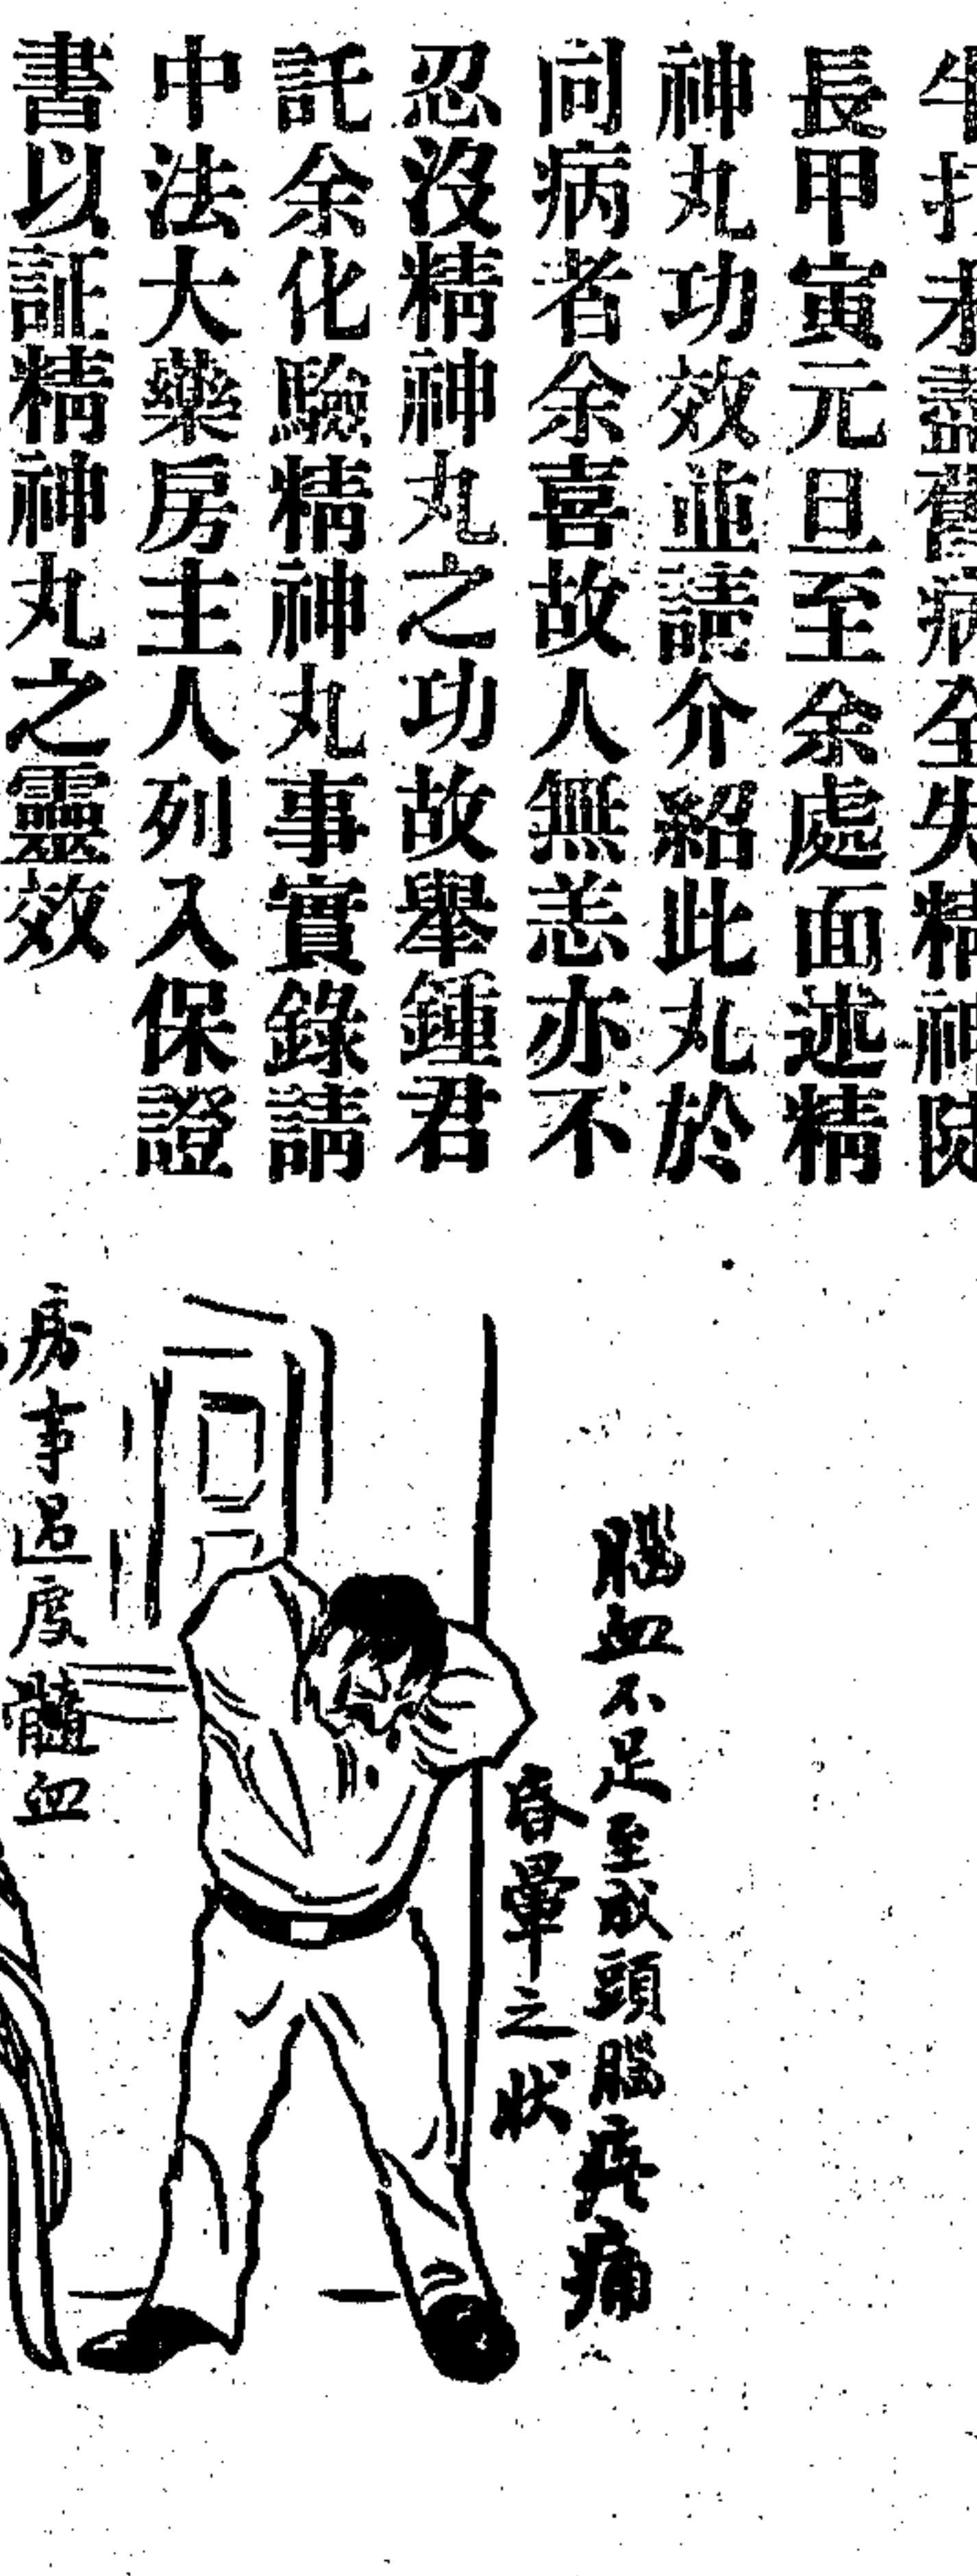 未盡舊病全失精神
長甲寅元旦至余處面述精
神丸功效並請介紹此丸於
同病者余喜故人無恙亦不
忍沒精神丸之功故舉鍾君
託余化驗精神丸事實錄請
中法大藥房主人列入保證
書以証精神丸之靈效
腦血不足至成頭腦疼痛
昏暈之狀
房事過度髓血